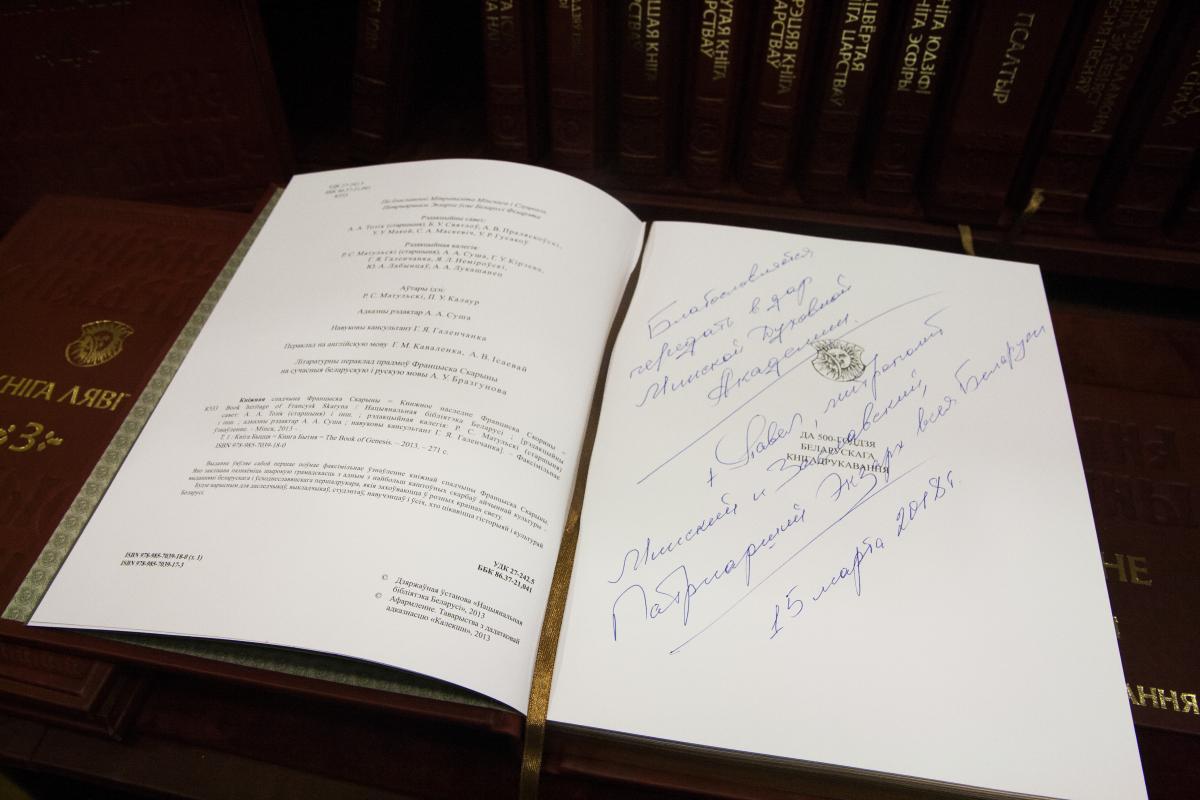 ШАЯ КНІГА
ЦАРСТВАЎ
УГАЯ КНІГА
ЦАРСТВАЎ
РЭЦЯЯ КНІГА
ЦАРСТВАЎ
ЦВЁРТАЯ
НІГА ЦАРСТВАЎ
НІГА ЮДЗІФІ
НІГА ЭСФІРЫ
ПСАЛТЫР
КНІГА ЛЯВІ
УДК 27-242.5
ББК 86.37-21,041
К533
Па благаславенні Мітрапаліта Мінскага і Слуцкага,
Патрыяршага Экзарха ўсяе Беларусі Філарэта
Рэдакцыйны савет:
А. А. Тозік (старшыня), Б. У. Святлоў, А. В. Праляскоўскі,
У. У. Макей, С. А. Маскевіч, У. Р. Гусакоў
Рэдакцыйная калегія:
Р. С. Матульскі (старшыня), А. А. Суша, Г. У. Кірэева,
Г. Я. Галенчанка, Я. Л. Неміроўскі,
Ю. А. Лабынцаў, А. А. Лукашанец
Аўтары ідэі:
Р. С. Матульскі, П. У. Калаур
Адказны рэдактар А. А. Суша
Навуковы кансультант Г. Я. Галенчанка
Пераклад на англійскую мову Г. М. Каваленка, А. В. Ісаевай
Літаратурны пераклад прадмоў Францыска Скарыны
на сучасныя беларускую і рускую мовы А. У. Бразгунова
Кніжная спадчына Францыска Скарыны = Книжное наследие Франциска Скорины =
К533 Book heritage of Francysk Skaryna / Нацыянальная бібліятэка Беларусі ; [рэдакцыйны
савет: А. А. Тозік (старшыня) і інш. ; рэдакцыйная калегія: Р. С. Матульскі (старшыня)
і інш. ; адказны рэдактар А. А. Суша ; навуковы кансультант Г. Я. Галенчанка]. – Факсімільнае
ўзнаўленне. – Мінск, 2013 –
Т. 1 : Кніга Быцця = Книга Бытия = The Book of Genesis. – 2013. – 271 с.
ISBN 978-985-7039-18-0
Выданне ўяўляе сабой першае поўнае факсімільнае ўзнаўленне кніжнай спадчыны Францыска Скарыны.
Яно заклікана пазнаёміць шырокую грамадскасць з адным з найбольш каштоўных скарбаў айчыннай культуры –
выданнямі беларускага і ўсходнеславянскага першадрукара, якія захоўваюцца ў розных краінах свету.
Будзе карысным для даследчыкаў, выкладчыкаў, студэнтаў, навучэнцаў і ўсіх, хто цікавіцца гісторыяй і культурай
Беларусі.
УДК 27-242.5
ББК 86.37-21,041
ISBN 978-985-7039-18-0 (т. 1)
ISBN 978-985-7039-17-3
© Дзяржаўная ўстанова «Нацыянальная
бібліятэка Беларусі», 2013
© Афармленне. Таварыства з дадатковай
адказнасцю «Калекшн», 2013
Благословляется
передать в дар
Минской Духовной
Академии.
+ Павел, митрополит
Минский и Заславский,
Патриарший Экзарх всея Беларуси
15 марта 2018г.
ДА 500-ГОДДЗЯ
БЕЛАРУСКАГА
КНІГАДРУКАВАННЯ
НЕ
АННЯ